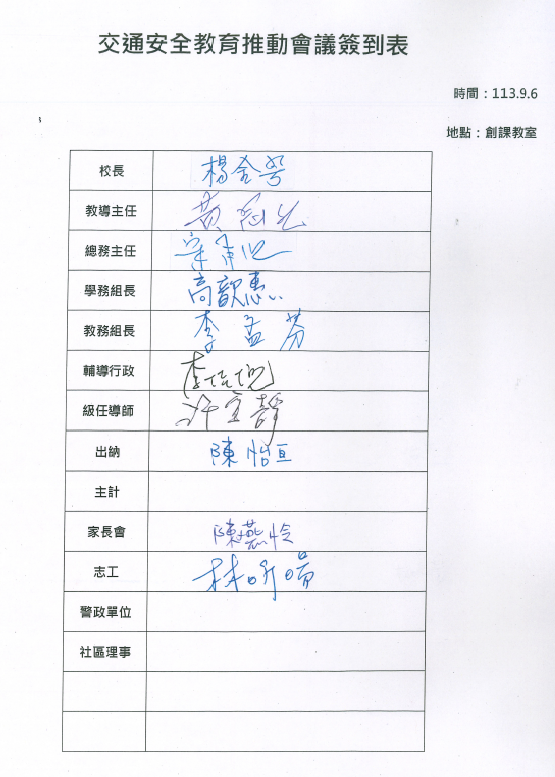 交通安全教育推動會議簽到表
時間：113.9.6
地點：創課教室
校長
教導主任 黃
總務主任
學務組長 高歆惠
教務組長 李孟芬
輔導行政 李
級任導師 許 靜
出納 陳怡亘
主計
家長會 陳燕怜
志工 林
警政單位
社區理事